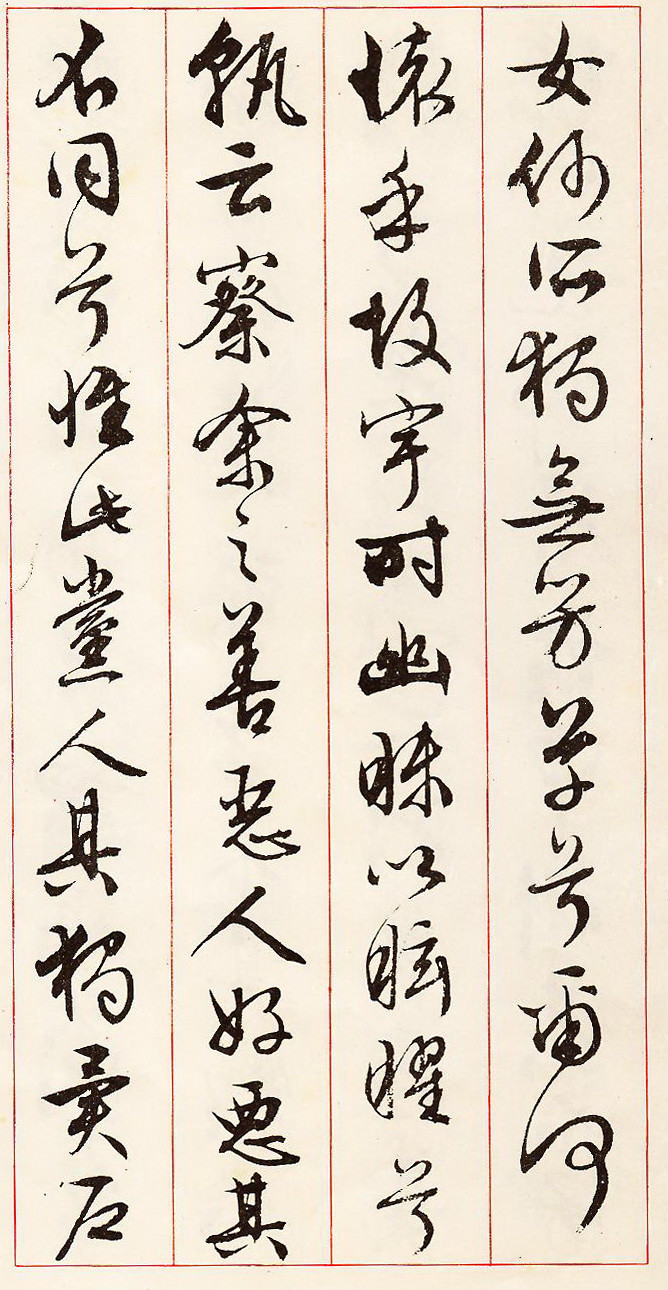 女何所獨無芳草兮爾何
懷乎故宇時幽昧以眩曜兮
孰云察余之善惡人好惡其
不同兮惟此黨人其獨異户